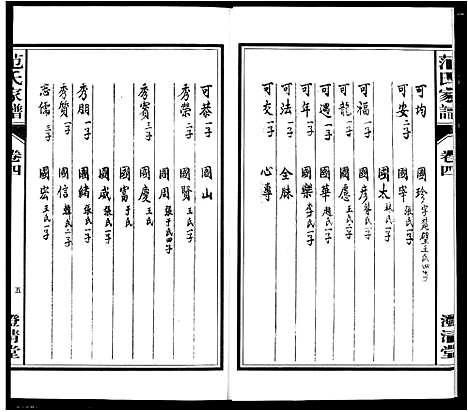 范氏家譜
卷四
澄清堂
可均 一子 國珍 字楚璧王氏四子
可安 二子 國宰 張氏一子
國太 赵氏二子
可福 一子 國彦 李氏一子
可龍 一子 國愿 王氏二子
可遇 一子 國華 趙氏一子
可年 一子 國樂 李氏一子
可法 一子 全脉
可交 一子 心尊
可恭 一子 國山
秀榮 二子 國賢 王氏一子
國周 張于氏四子
秀賓 三子 國慶 王氏
國富 于氏
國威 張氏一子
秀朋 一子 國緒 張氏一子
秀質 一子 國信 韓氏一子
志儒 三子 國宏 王氏一子
范氏家譜
卷四
五
澄清堂